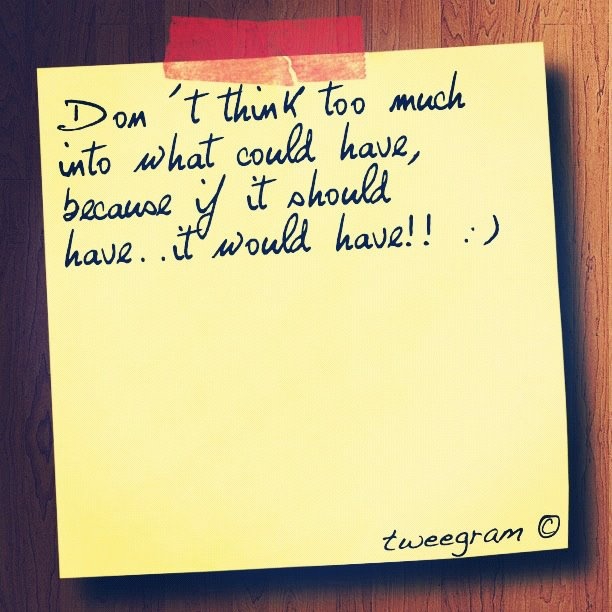 Don 't think too much
into what could have,
because if it should
have..it would have!! :)
tweegram ©